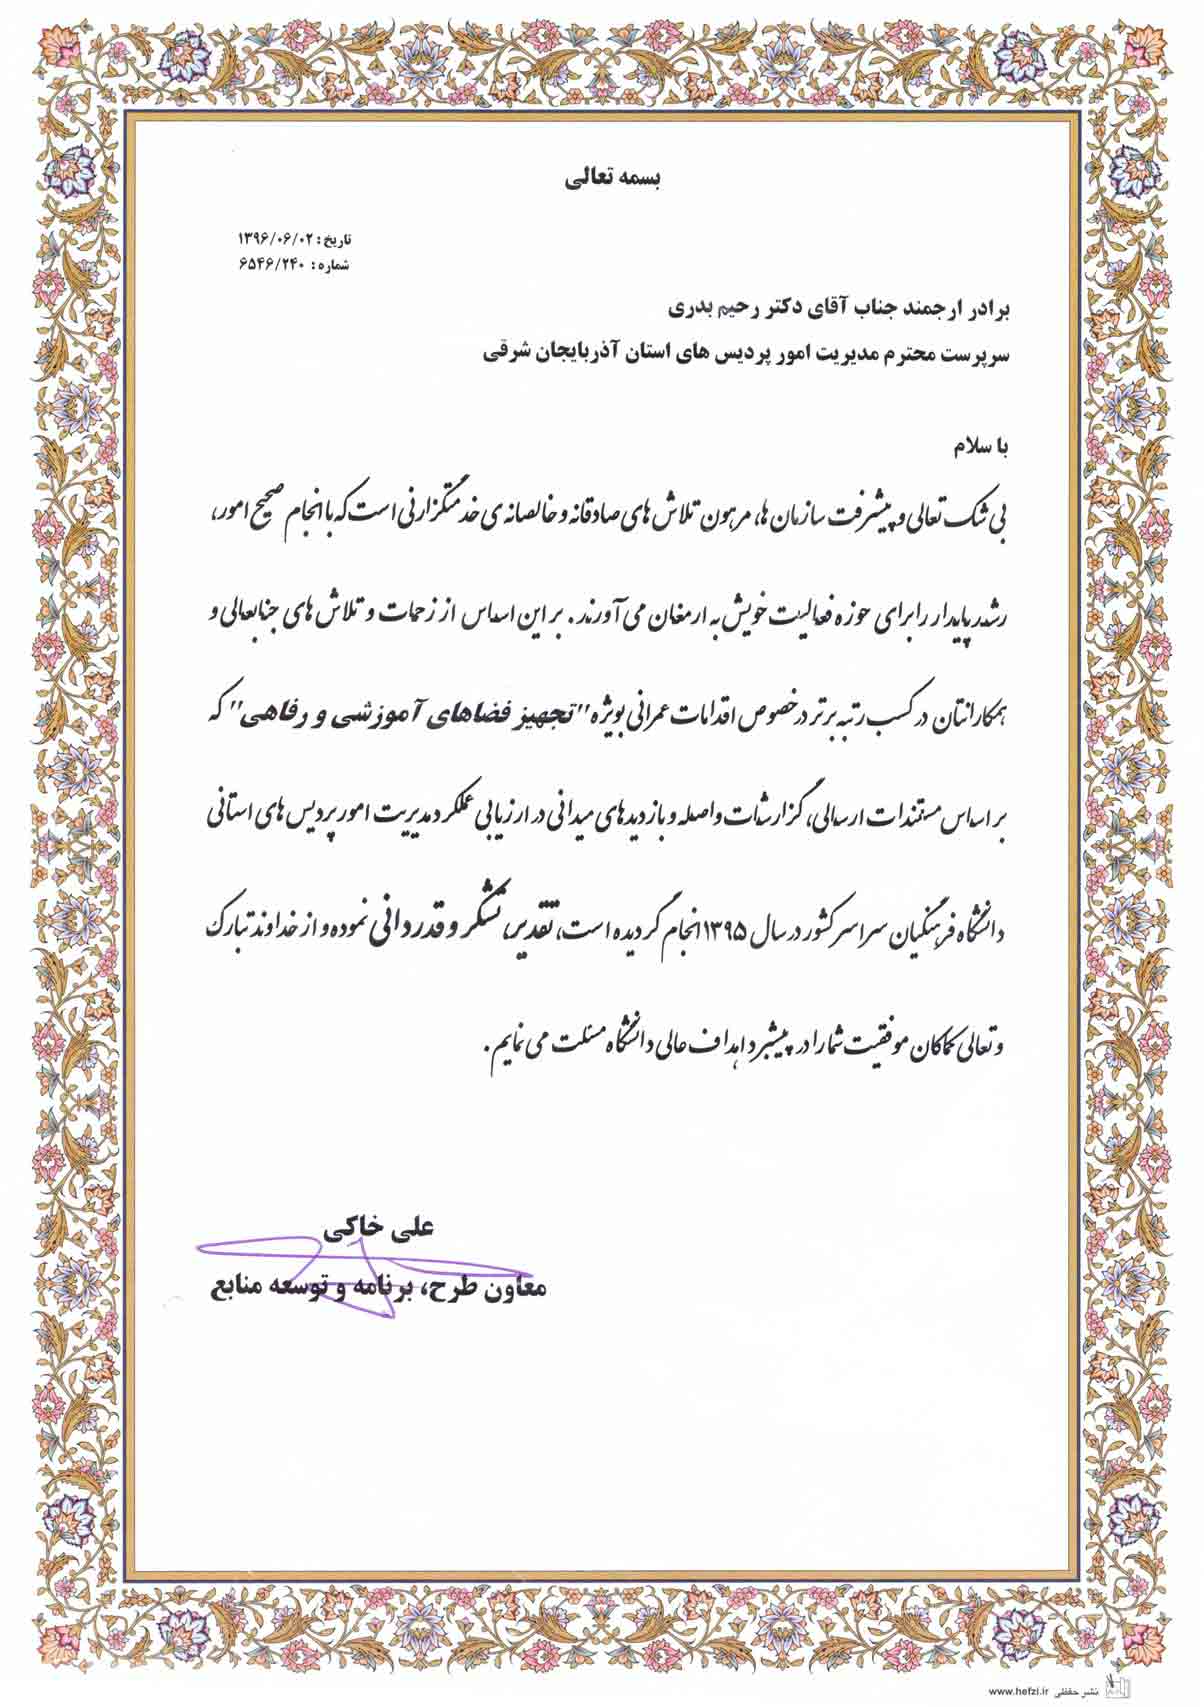 بسمه تعالی
تاریخ : ۱۳۹۶/۰۶/۰۲
شماره : ۶۵۴۶/۲۴۰
برادر ارجمند جناب آقای دکتر رحیم بدری
سرپرست محترم مدیریت امور پردیس های استان آذربایجان شرقی
با سلام
بی شک تعالی و پیشرفت سازمان ها، مرهون تلاش های صادقانه و خالصانه ی خدمتگزارنی است که با انجام صحیح امور،
رشد پایدار را برای حوزه فعالیت خویش به ارمغان می آورند. بر این اساس از زحمات و تلاش های جنابعالی و
همکارانتان در کسب رتبه برتر در خصوص اقدامات عمرانی بویژه "تجهیز فضاهای آموزشی و رفاهی" که
بر اساس مستندات ارسالی، گزارشات واصله و بازدیدهای میدانی در ارزیابی عملکرد مدیریت امور پردیس های استانی
دانشگاه فرهنگیان سراسر کشور در سال ۱۳۹۵ انجام گردیده است، تقدیر، تشکر و قدردانی نموده و از خداوند تبارک
و تعالی کماکان موفقیت شما را در پیشبرد اهداف عالی دانشگاه مسئلت می نمایم.
علی خاکی
معاون طرح، برنامه و توسعه منابع
نشر حفظی www.hefzi.ir